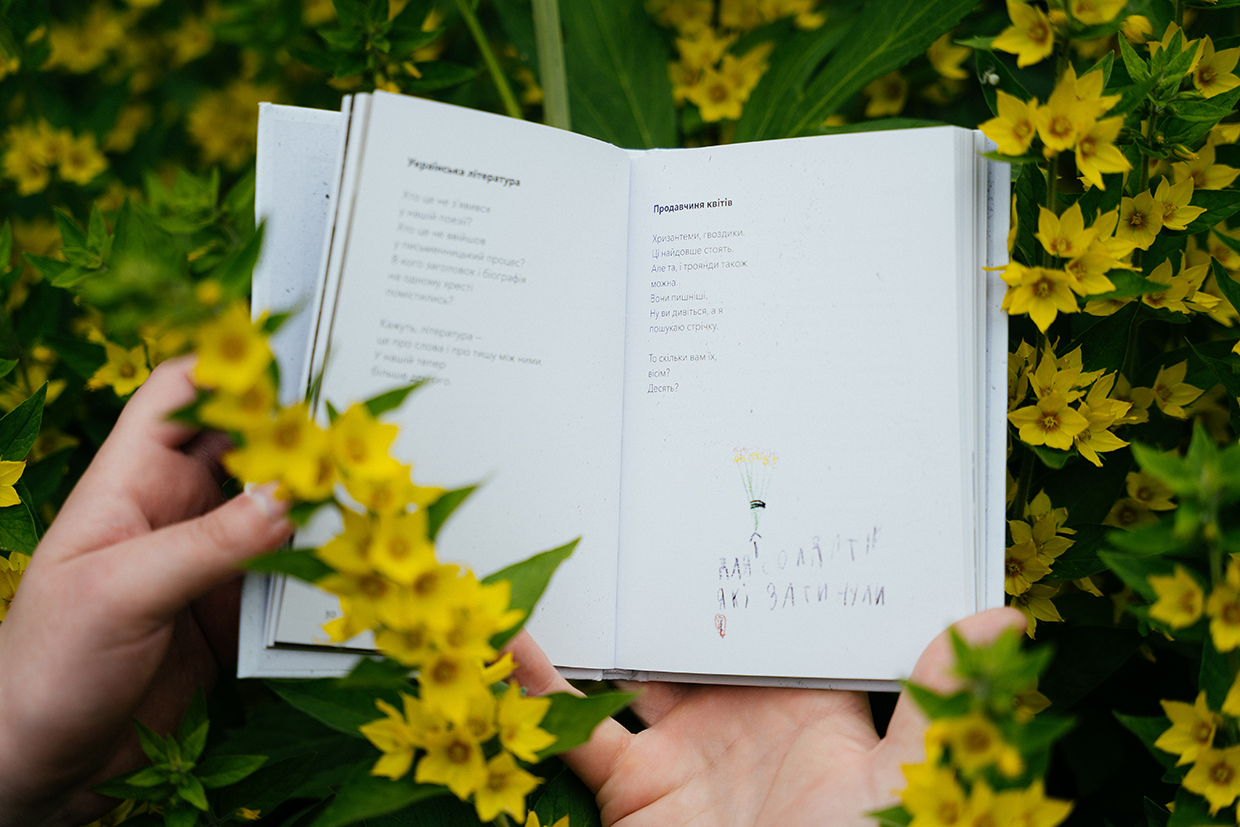 Українська література
Хто це не з'явився
у нашій поезії?
Хто це не ввійшов
у письменницький процес?
В кого заголовок і біографія
на одному хресті
помістились?
Кажуть, література –
це про слова і про тишу між ними.
У нашій тепер
більше другого.
30
Продавчиня квітів
Хризантеми, гвоздики.
Ці найдовше стоять.
Але та, і троянди також
можна.
Вони пишніші.
Ну ви дивіться, а я
пошукаю стрічку.
То скільки вам їх,
вісім?
Десять?
ДЛЯ СОЛДАТІВ
ЯКІ ЗАГИНУЛИ